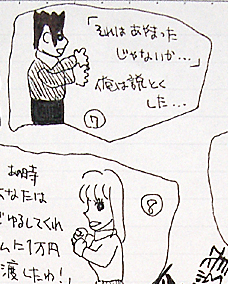 「それはあやまった
じゃないか…」
俺は説とく
した…
⑦
⑧
あの時
あなたは
ゆるしてくれ
ムに1万円
渡したわ!